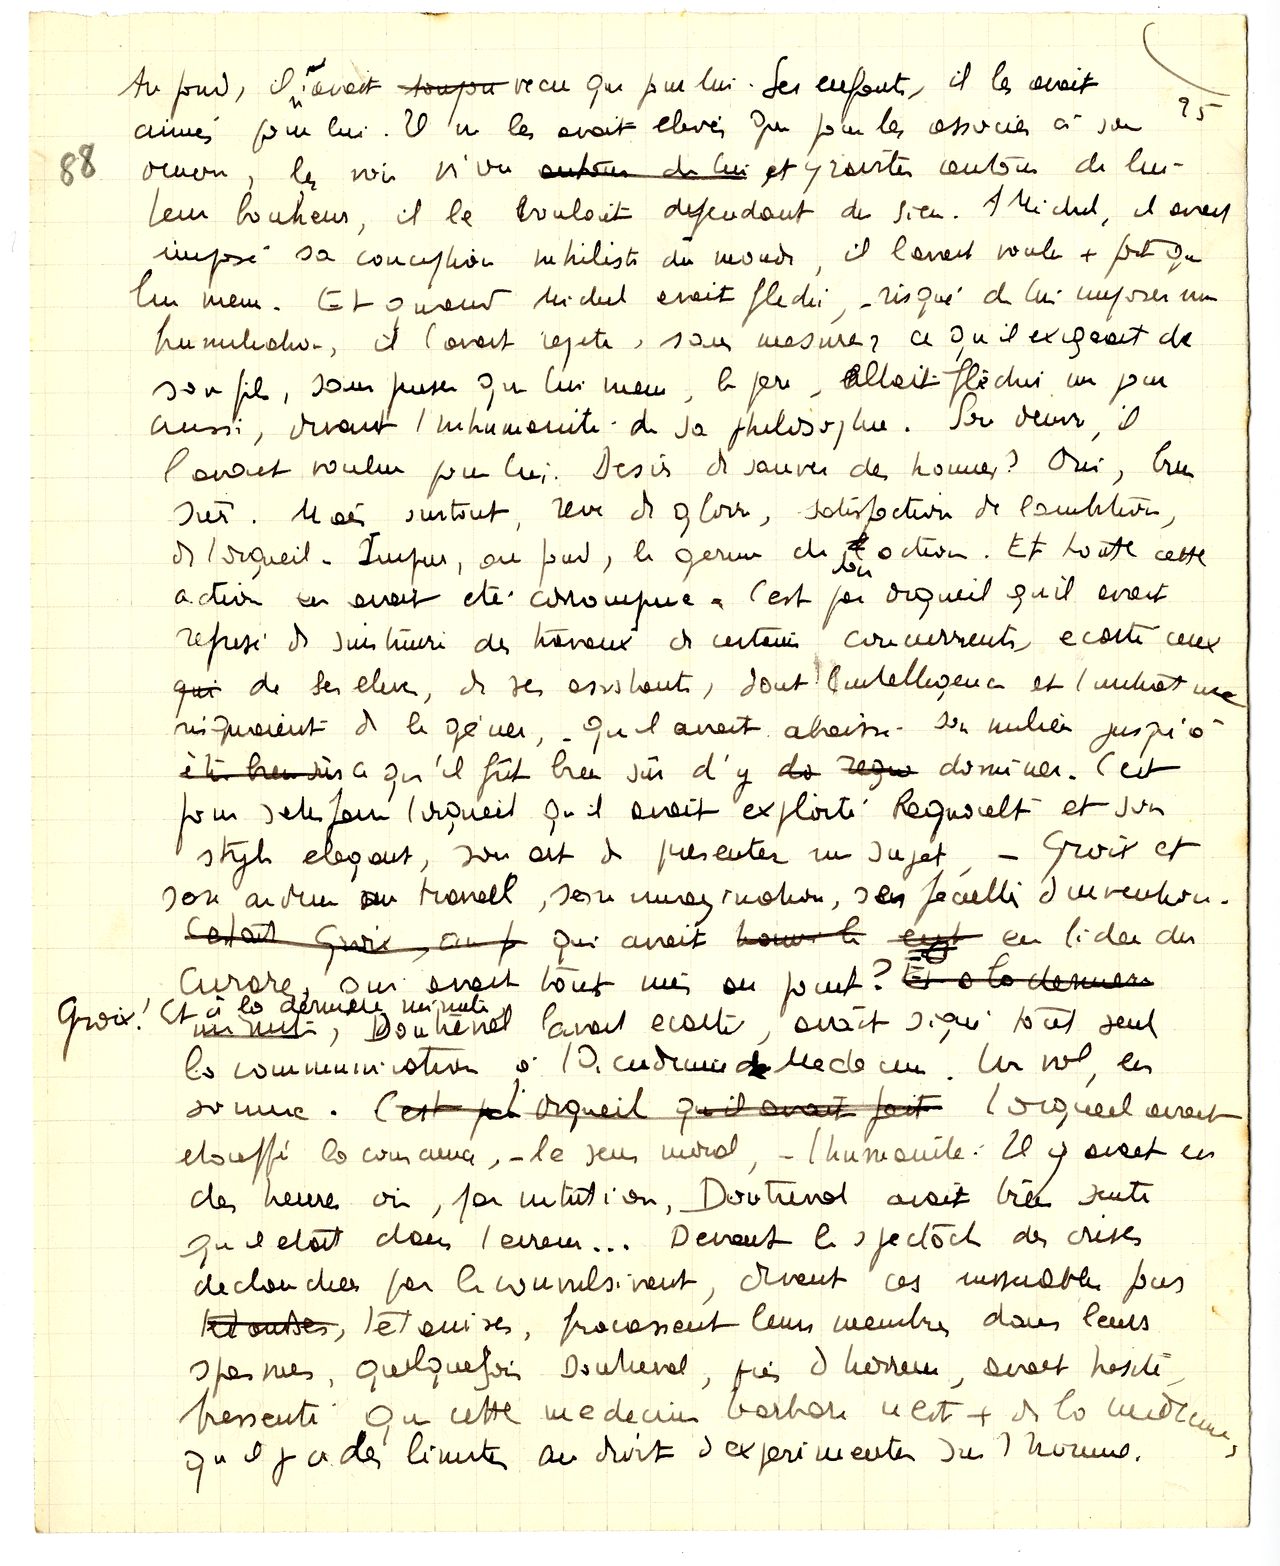 95
88
Au fond, il n'avait toujou vecu que pour lui. Ses enfants, il les avait
aimés pour lui. Il ne les avait elevés que pour les associer à son
œuvre, les voir vivre autour de lui et graviter autour de lui.
leur bonheur, il le voulait dependant du sien. A Michel, il avait
imposé sa conception nihiliste du monde, il l'avait voulu + fort que
lui meme. Et quand Michel avait flechi, - risqué de lui imposer une
humiliation, il l'avait rejeté, sans mesurer ce qu'il exigeait de
son fils, sans penser que lui meme, le pere, allait flechir un jour
aussi, devant l'inhumanité de sa philosophie. Son œuvre, il
l'avait voulue pour lui. Desir de sauver des hommes? Oui, bien
sûr. Mais surtout, reve de gloire, satisfaction de l'ambition,
de l'orgueil. Impur, au fond, le germe de son action. Et toute cette
action en avait eté corrompue. C'est par orgueil qu'il avait
refusé de s'instruire des travaux de certains concurrents, ecarté ceux
qui de ses eleves, de ses assistants, dont l'intelligence et l'initiative
risquaient de le gêner, - qu'il avait abaissé son milieu jusqu'à
être bien sûr ce qu'il fût bien sûr d'y de regne dominer. C'est
pour satisfaire l'orgueil qu'il avait exploité Regnoult et son
style elegant, son art de presenter un sujet, - Groix et
son ardeur au travail, son imagination, ses facultés d'invention.
C'etait Groix, au f qui avait eu l'idee du
curare, qui avait tout mis au point? Et a la derniere
Groix! Et à la dernière minute
minute, Doutreval l'avait ecarté, avait signé tout seul
la communication à l'Academie de Medecine. Un vol, en
somme. C'est par orgueil qu'il avait fait L'orgueil avait
etouffé la conscience, - le sens moral, - l'humanité. Il y avait eu
des heures où, par intuition, Doutreval avait bien senti
qu'il etait dans l'erreur... Devant le spectacle des crises
declenchees par le convulsivant, devant ces miserables fous
tetanisés, tétanisés, fracassant leurs membres dans leurs
spasmes, quelquefois Doutreval, pris d'horreur, avait hesité,
pressenti que cette medecine barbare n'est + de la medecine,
qu'il y a des limites au droit d'experimenter sur l'homme.